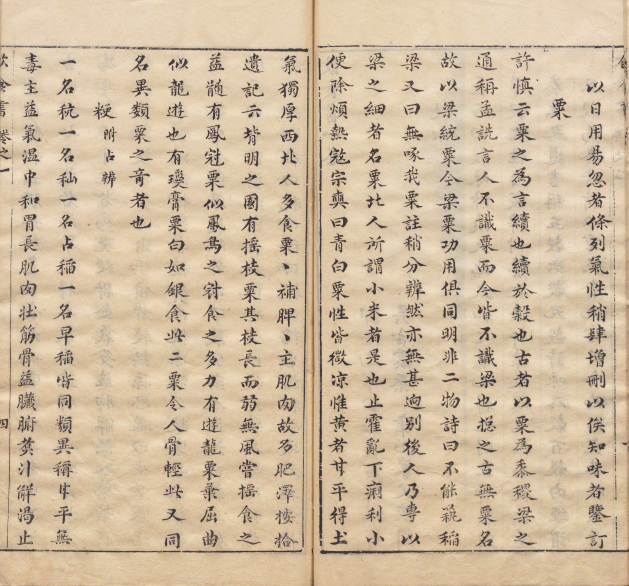 以日用易忽者條列氣性稍肆增刪以俟知味者鑒訂
粟
許慎云粟之為言續也續於穀也古者以粟為黍稷粱之
通稱孟詵言人不識粟而今皆不識粱也揔之古無粟名
故以粱統粟今粱粟功用俱同明非二物詩曰不能蓺稲
梁又曰無啄我粟註稍分辨然亦無甚逈別後人乃專以
梁之細者名粟北人所謂小米者是也止霍亂下痢利小
便除煩熱寇宗奭曰青白粟性皆微凉惟黃者甘平得土
氣獨厚西北人多食粟丶補脾丶主肌肉故多肥澤按拾
遺記云背明之國有揺枝粟其枝長而弱無風嘗揺食之
益髓有鳳冠粟似鳳鳥之冠食之多力有遊龍粟葉屈曲
似龍遊也有瓊膏粟白如銀食此二粟令人骨輕此又同
名異類粟之竒者也
粳 附占辨
一名秔一名秈一名占稲一名早稲皆同類異稱甘平無
毒主益氣溫中和胃長肌肉壯筋骨益臟腑煑汁解渴止
飲食書卷之一
四